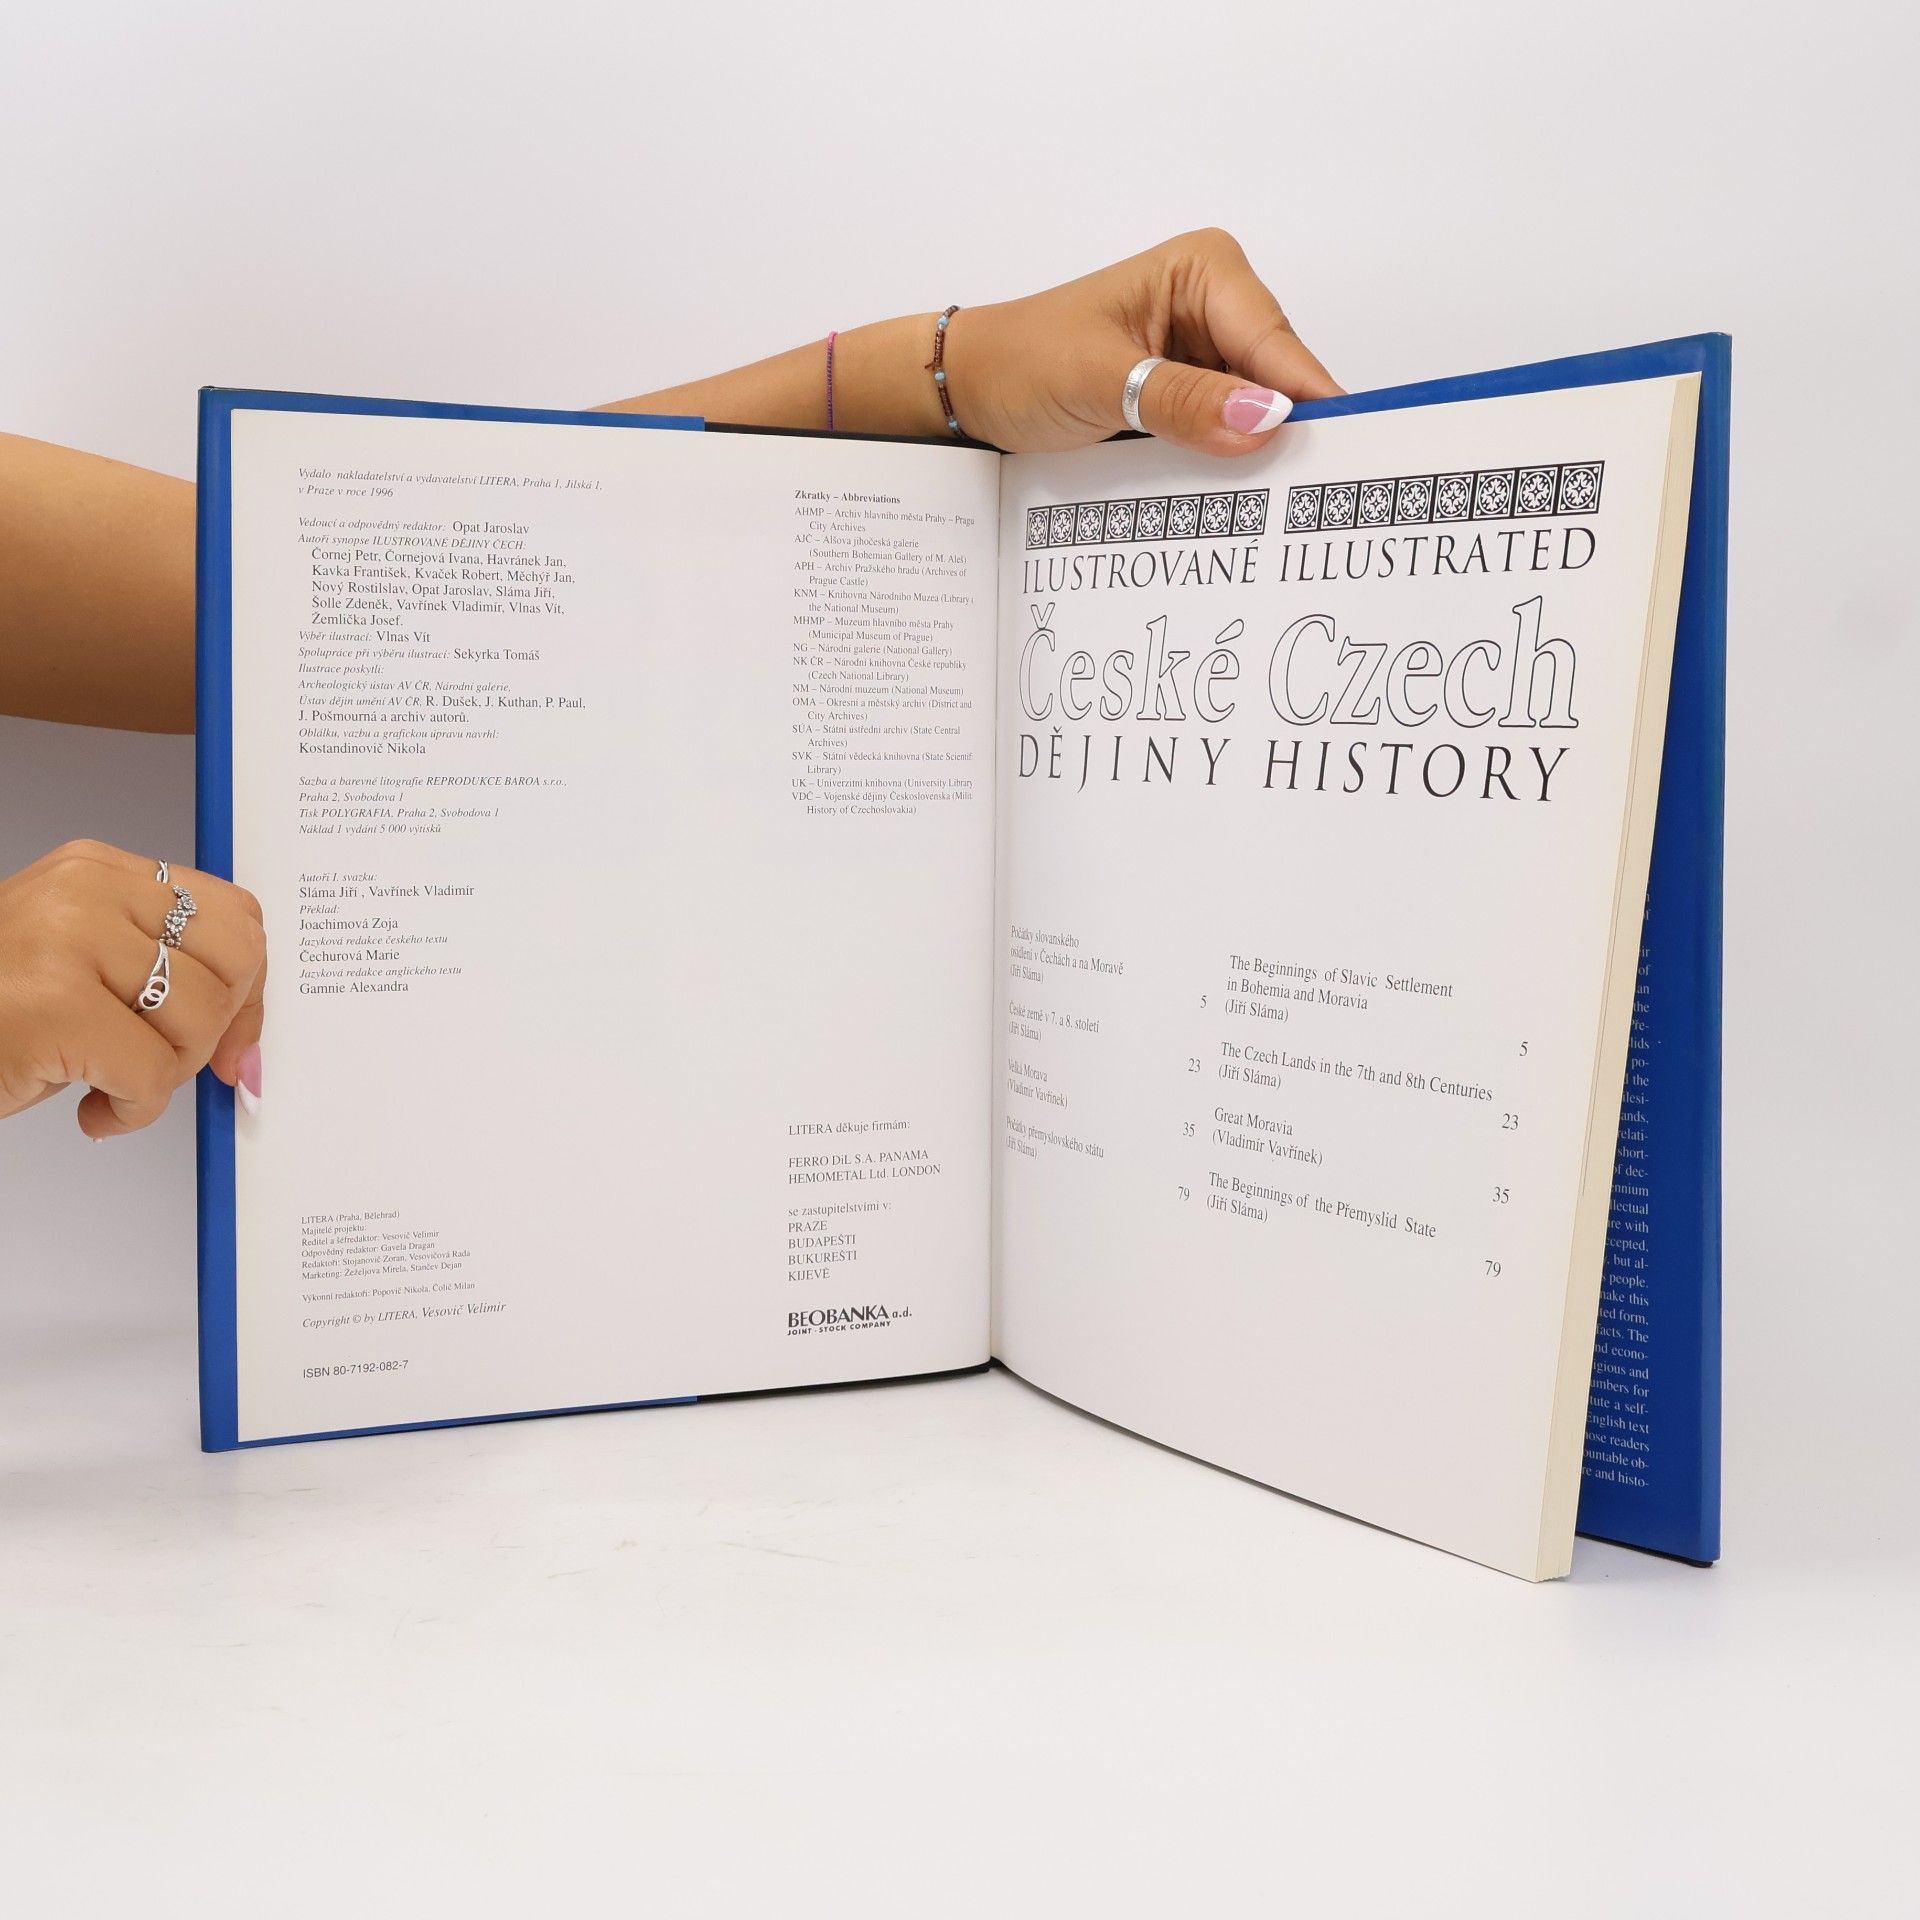 Vydalo nakladatelství a vydavatelství LITERA, Praha 1, Jilská 1,
v Praze v roce 1996
Vedoucí a odpovědný redaktor: Opat Jaroslav
Autoři synopse ILUSTROVANÉ DĚJINY ČECH:
Čornej Petr, Čornejová Ivana, Havránek Jan,
Kavka František, Kvaček Robert, Měchýř Jan,
Nový Rostilslav, Opat Jaroslav, Sláma Jiří,
Šolle Zdeněk, Vavřínek Vladimír, Vlnas Vít,
Žemlička Josef.
Výběr ilustrací: Vlnas Vít
Spolupráce při výběru ilustrací: Sekyrka Tomáš
Ilustrace poskytli:
Archeologický ústav AV ČR, Národní galerie,
Ústav dějin umění AV ČR, R. Dušek, J. Kuthan, P. Paul,
J. Pošmourná a archiv autorů.
Obálku, vazbu a grafickou úpravu navrhl:
Kostandinovič Nikola
Sazba a barevné litografie REPRODUKCE BAROA s.r.o.,
Praha 2, Svobodova 1
Tisk POLYGRAFIA, Praha 2, Svobodova 1
Náklad 1 vydání 5 000 výtisků
Autoři I. svazku:
Sláma Jiří , Vavřínek Vladimír
Překlad:
Joachimová Zoja
Jazyková redakce českého textu
Čechurová Marie
Jazyková redakce anglického textu
Gamnie Alexandra
LITERA (Praha, Bělehrad)
Majitelé projektu:
Ředitel a šéfredaktor: Vesovič Velimir
Odpovědný redaktor: Gavela Dragan
Redaktoři: Stojanovič Zoran, Vesovičová Rada
Marketing: Žeželjova Mirela, Stančev Dejan
Výkonní redaktoři: Popovič Nikola, Čolič Milan
Copyright © by LITERA, Vesovič Velimir
ISBN 80-7192-082-7
Zkratky – Abbreviations
AHMP – Archiv hlavního města Prahy –
City Archives
AJČ – Alšova jihočeská galerie
(Southern Bohemian Gallery of M. Aleš)
APH – Archiv Pražského hradu (Archives of
Prague Castle)
KNM – Knihovna Národního Muzea (Library
the National Museum)
MHMP – Muzeum hlavního města Prahy
(Municipal Museum of Prague)
NG – Národní galerie (National Gallery)
NK ČR – Národní knihovna České republiky
(Czech National Library)
NM – Národní muzeum (National Museum)
OMA – Okresní a městský archiv (District and
City Archives)
SÚA – Státní ústřední archiv (State Central
Archives)
SVK – Státní vědecká knihovna (State
Library)
UK – Univerzitní knihovna (University Library
VDČ – Vojenské dějiny Československa
History of Czechoslovakia)
LITERA děkuje firmám:
FERRO DiL S.A. PANAMA
HEMOMETAL Ltd. LONDON
se zastupitelstvími v:
PRAZE
BUDAPEŠTI
BUKUREŠTI
KIJEVĚ
BEOBANKA a.d.
JOINT - STOCK COMPANY
ILUSTROVANÉ ILLUSTRATED
České Czech
DĚJINY HISTORY
Počátky slovanského
osídlení v Čechách a na Moravě
(Jiří Sláma)
5
České země v 7. a 8. století
(Jiří Sláma)
23
Velká Morava
(Vladimír Vavřínek)
35
Počátky přemyslovského státu
(Jiří Sláma)
79
The Beginnings of Slavic Settlement
in Bohemia and Moravia
(Jiří Sláma)
5
The Czech Lands in the 7th and 8th Centuries
(Jiří Sláma)
23
Great Moravia
(Vladimír Vavřínek)
35
The Beginnings of the Přemyslid State
(Jiří Sláma)
79
of
an
the
Pře-
po-
the
ands,
relati-
short-
of dec-
with
but al-
people.
make this
form,
facts. The
econo-
and
numbers for
a self-
English text
readers
ob-
and histo-